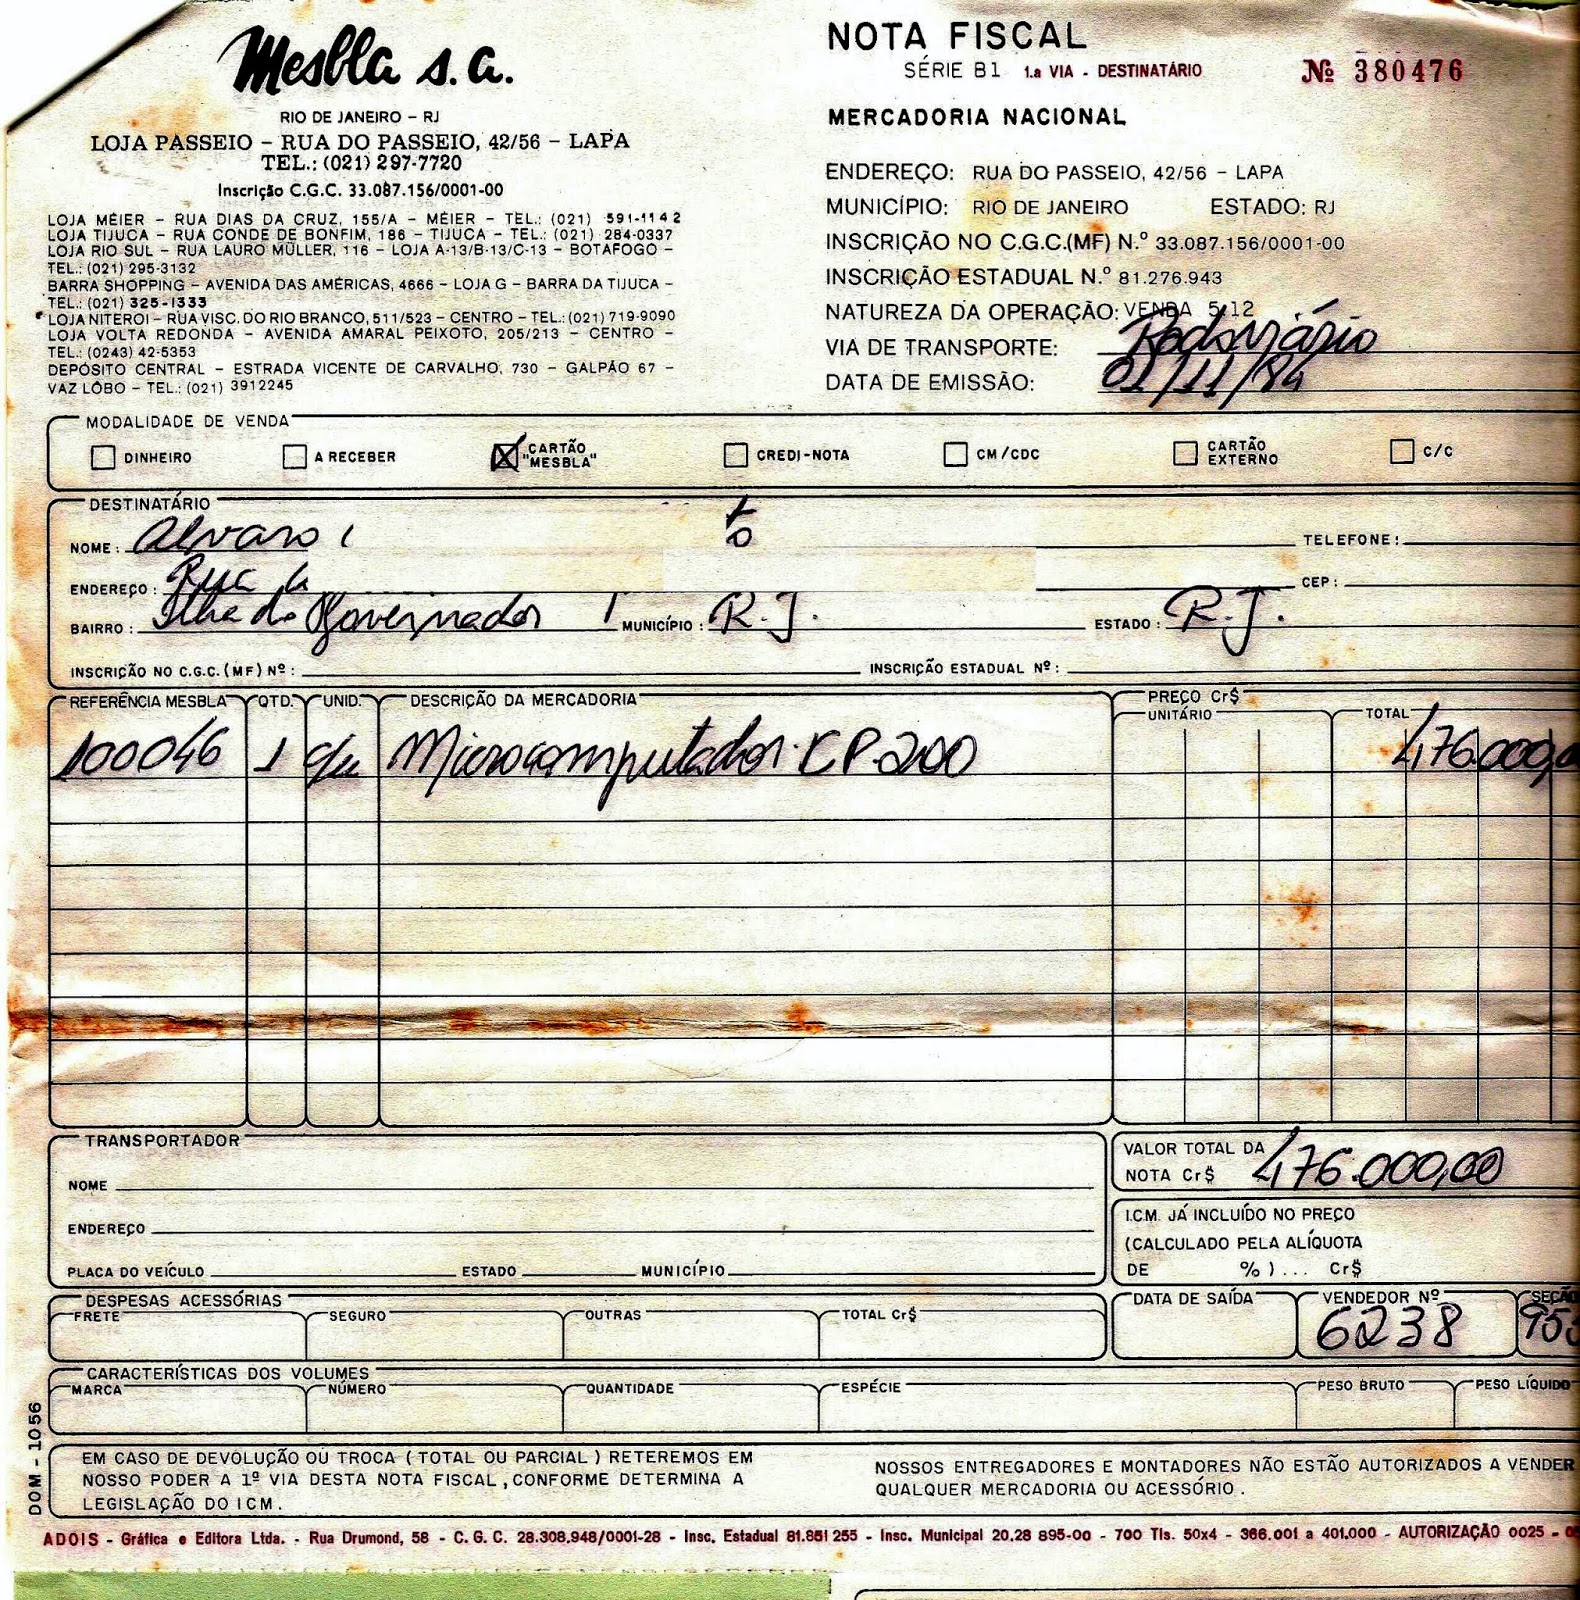 Mesbla s.a.
RIO DE JANEIRO - RJ
LOJA PASSEIO - RUA DO PASSEIO, 42/56 - LAPA
TEL.: (021) 297-7720
Inscrição C.G.C. 33.087.156/0001-00
LOJA MÉIER - RUA DIAS DA CRUZ, 155/A - MÉIER - TEL.: (021) 591-1142
LOJA TIJUCA - RUA CONDE DE BONFIM, 186 - TIJUCA - TEL.: (021) 284-0337
LOJA RIO SUL - RUA LAURO MÜLLER, 116 - LOJA A-13/B-13/C-13 - BOTAFOGO -
TEL.: (021) 295-3132
BARRA SHOPPING - AVENIDA DAS AMÉRICAS, 4666 - LOJA G - BARRA DA TIJUCA -
TEL.: (021) 325-1333
LOJA NITEROI - RUA VISC. DO RIO BRANCO, 511/523 - CENTRO - TEL.: (021) 719-9090
LOJA VOLTA REDONDA - AVENIDA AMARAL PEIXOTO, 205/213 - CENTRO -
TEL.: (0243) 42-5353
DEPÓSITO CENTRAL - ESTRADA VICENTE DE CARVALHO, 730 - GALPÃO 67 -
VAZ LÔBO - TEL.: (021) 3912245
NOTA FISCAL
SÉRIE B1 1.a VIA - DESTINATÁRIO Nº 380476
MERCADORIA NACIONAL
ENDEREÇO: RUA DO PASSEIO, 42/56 - LAPA
MUNICÍPIO: RIO DE JANEIRO ESTADO: RJ
INSCRIÇÃO NO C.G.C.(MF) N.º 33.087.156/0001-00
INSCRIÇÃO ESTADUAL N.º 81.276.943
NATUREZA DA OPERAÇÃO: VENDA 5.12
VIA DE TRANSPORTE: Rodoviário
DATA DE EMISSÃO: 01/11/84
MODALIDADE DE VENDA
DINHEIRO A RECEBER X CARTÃO "MESBLA" CREDI-NOTA CM/CDC CARTÃO EXTERNO C/C
DESTINATÁRIO
NOME: Alvaro TELEFONE:
ENDEREÇO: Rua CEP:
BAIRRO: Ilha do Governador MUNICÍPIO: R.J. ESTADO: R.J.
INSCRIÇÃO NO C.G.C. (MF) Nº: INSCRIÇÃO ESTADUAL Nº:
REFERÊNCIA MESBLA QTD. UNID. DESCRIÇÃO DA MERCADORIA PREÇO Cr$
UNITÁRIO TOTAL
100046 1 Microcomputador CP-200 476.000,0
TRANSPORTADOR
NOME
ENDEREÇO
PLACA DO VEÍCULO ESTADO MUNICÍPIO
VALOR TOTAL DA
NOTA Cr$ 476.000,00
I.C.M. JÁ INCLUÍDO NO PREÇO
(CALCULADO PELA ALÍQUOTA
DE %)... Cr$
DESPESAS ACESSÓRIAS
FRETE SEGURO OUTRAS TOTAL Cr$
DATA DE SAÍDA VENDEDOR Nº SEÇÃO
6238 955
CARACTERÍSTICAS DOS VOLUMES
MARCA NÚMERO QUANTIDADE ESPÉCIE PESO BRUTO PESO LÍQUIDO
DOM - 1056
EM CASO DE DEVOLUÇÃO OU TROCA (TOTAL OU PARCIAL) RETEREMOS EM
NOSSO PODER A 1º VIA DESTA NOTA FISCAL, CONFORME DETERMINA A
LEGISLAÇÃO DO ICM.
NOSSOS ENTREGADORES E MONTADORES NÃO ESTÃO AUTORIZADOS A VENDER
QUALQUER MERCADORIA OU ACESSÓRIO.
ADOIS - Gráfica e Editora Ltda. - Rua Drumond, 58 - C.G.C. 28.308.948/0001-28 - Insc. Estadual 81.851 255 - Insc. Municipal 20.28 895-00 - 700 Tls. 50x4 - 366.001 a 401.000 - AUTORIZAÇÃO 0025 -